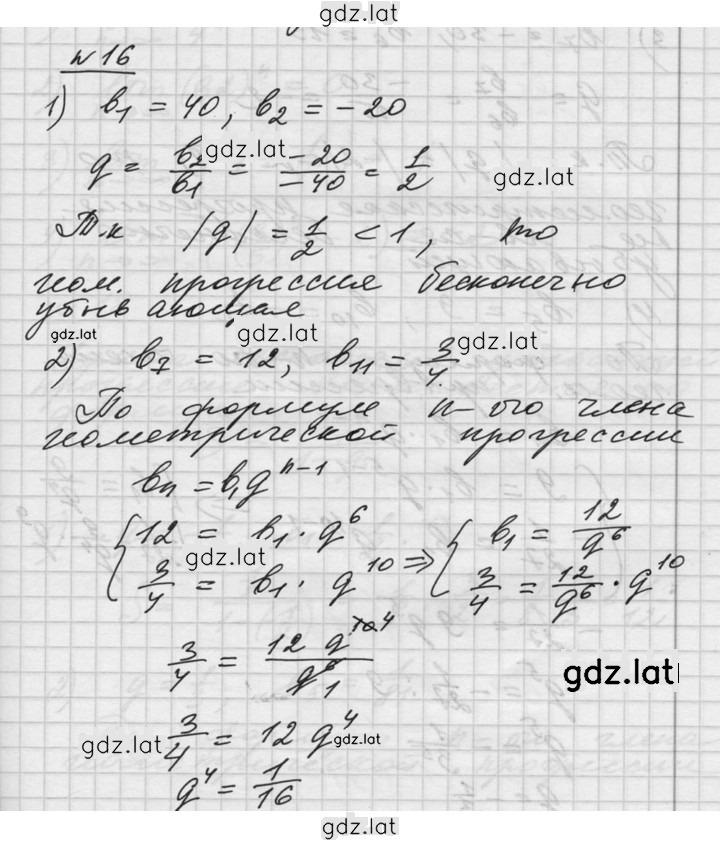 gdz.lat
№ 16
1) b₁ = 40, b₂ = -20
gdz.lat
q = b₂/b₁ = -20/-40 = 1/2
gdz.lat
Т.к |q| = 1/2 < 1, то
геом. прогрессия бесконечно
убывающая
gdz.lat
gdz.lat
gdz.lat
2) b₇ = 12, b₁₁ = 3/4.
По формуле n-ого члена
геометрической прогрессии
bₙ = b₁qⁿ⁻¹
{ 12 = b₁ · q⁶
gdz.lat
3/4 = b₁ · q¹⁰ ⇒ { b₁ = 12/q⁶
3/4 = 12/q⁶ · q¹⁰
3/4 = 12 q¹⁰ ⁴/q⁶ 1
gdz.lat
3/4 = 12 q⁴
gdz.lat
gdz.lat
q⁴ = 1/16
gdz.lat